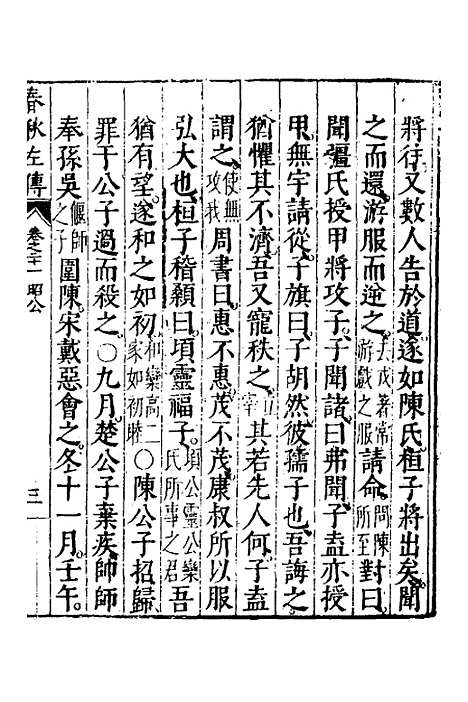 將往又數人告於道遂如陳氏桓子將出矣聞
之而還游服而逆之去戎著常游戲之服請命問陳所至對曰
聞彊氏授甲將攻子子聞諸曰弗聞子盍亦授
甲無宇請從子旗曰子胡然彼孺子也吾誨之
猶懼其不濟吾又寵秩之立宰其若先人何子盍
謂之使無攻我周書曰惠不惠茂不茂康叔所以服
弘大也桓子稽顙曰頃靈福子頃公靈公欒氏所事之君吾
猶有望遂和之如初和欒高二家如初睦○陳公子招歸
罪于公子過而殺之○九月楚公子棄疾帥師
奉孫吳偃師之子圍陳宋戴惡會之冬十一月壬午
春秋左傳 卷之二一 昭公 三